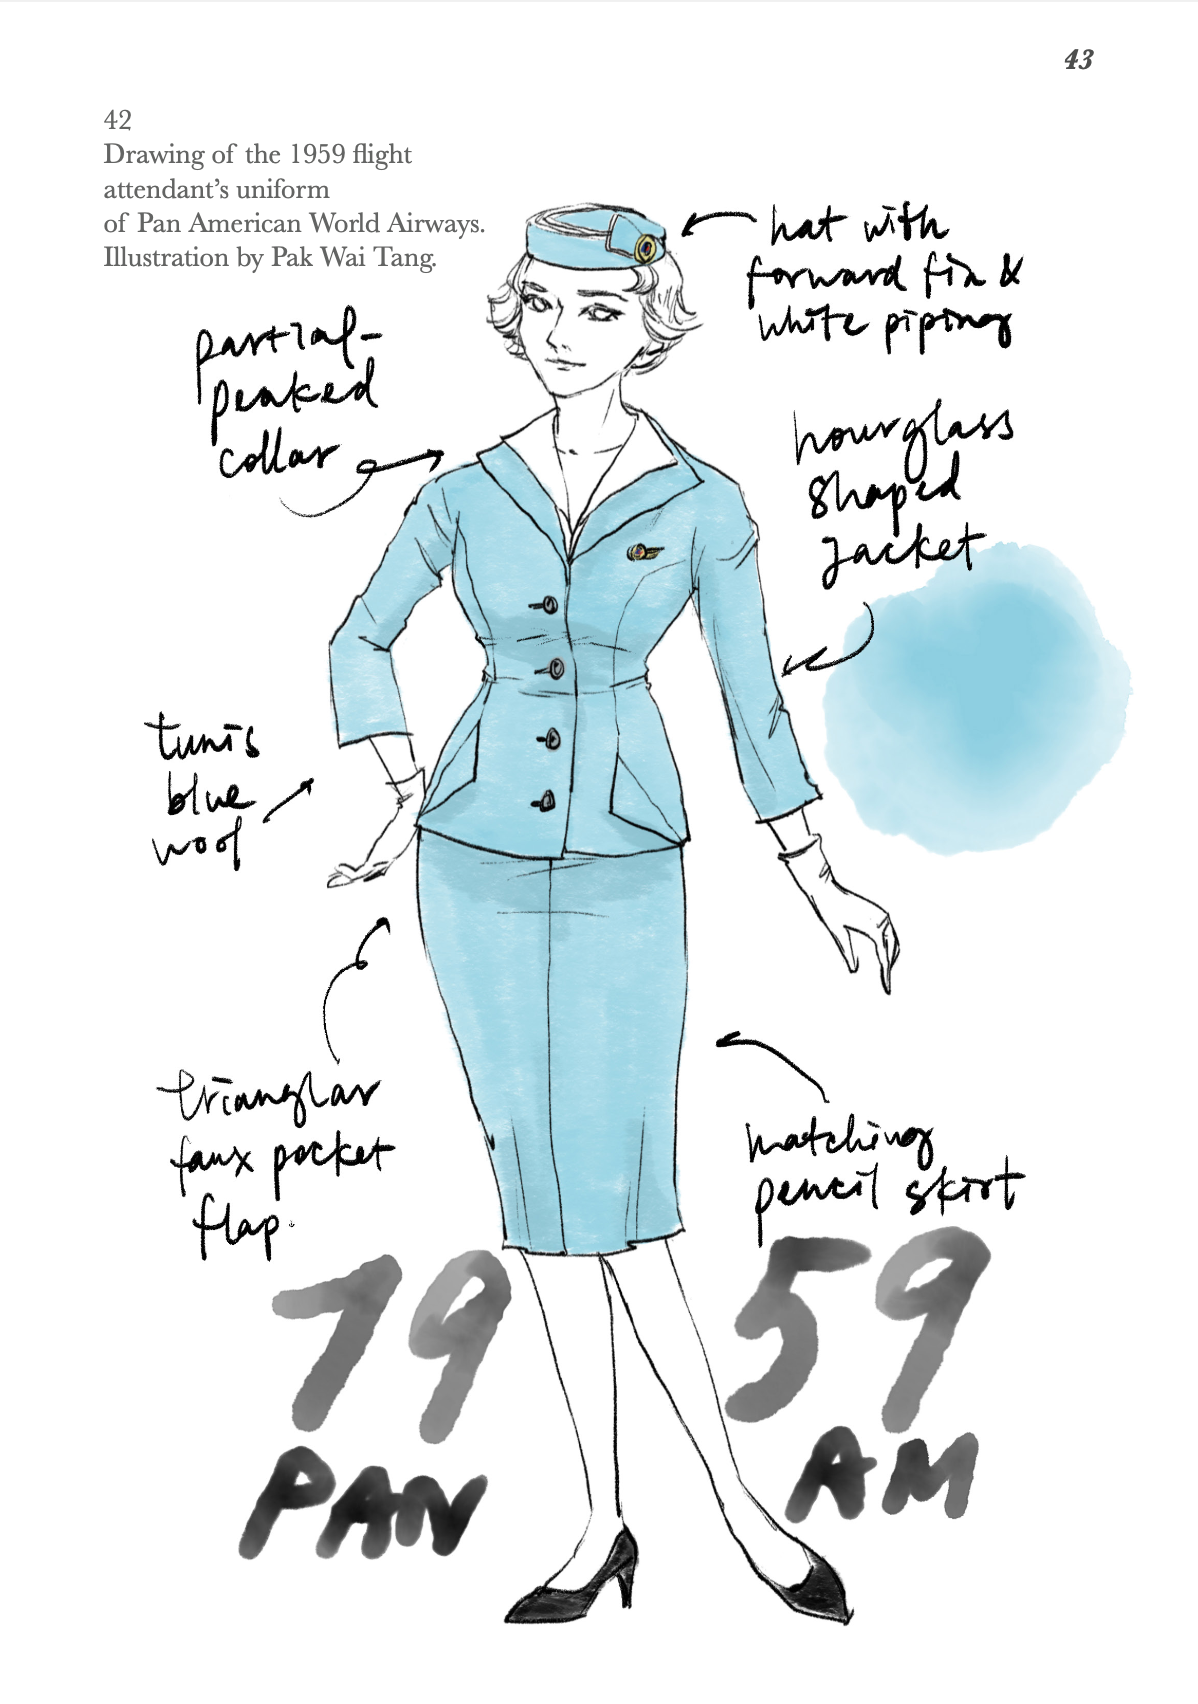 43
42
Drawing of the 1959 flight
attendant’s uniform
of Pan American World Airways.
Illustration by Pak Wai Tang.
hat with
forward fin &
white piping
partial-
peaked
collar
hourglass
shaped
jacket
tunis
blue
wool
trianglar
faux pocket
flap.
matching
pencil skirt
19 59
PAN AM